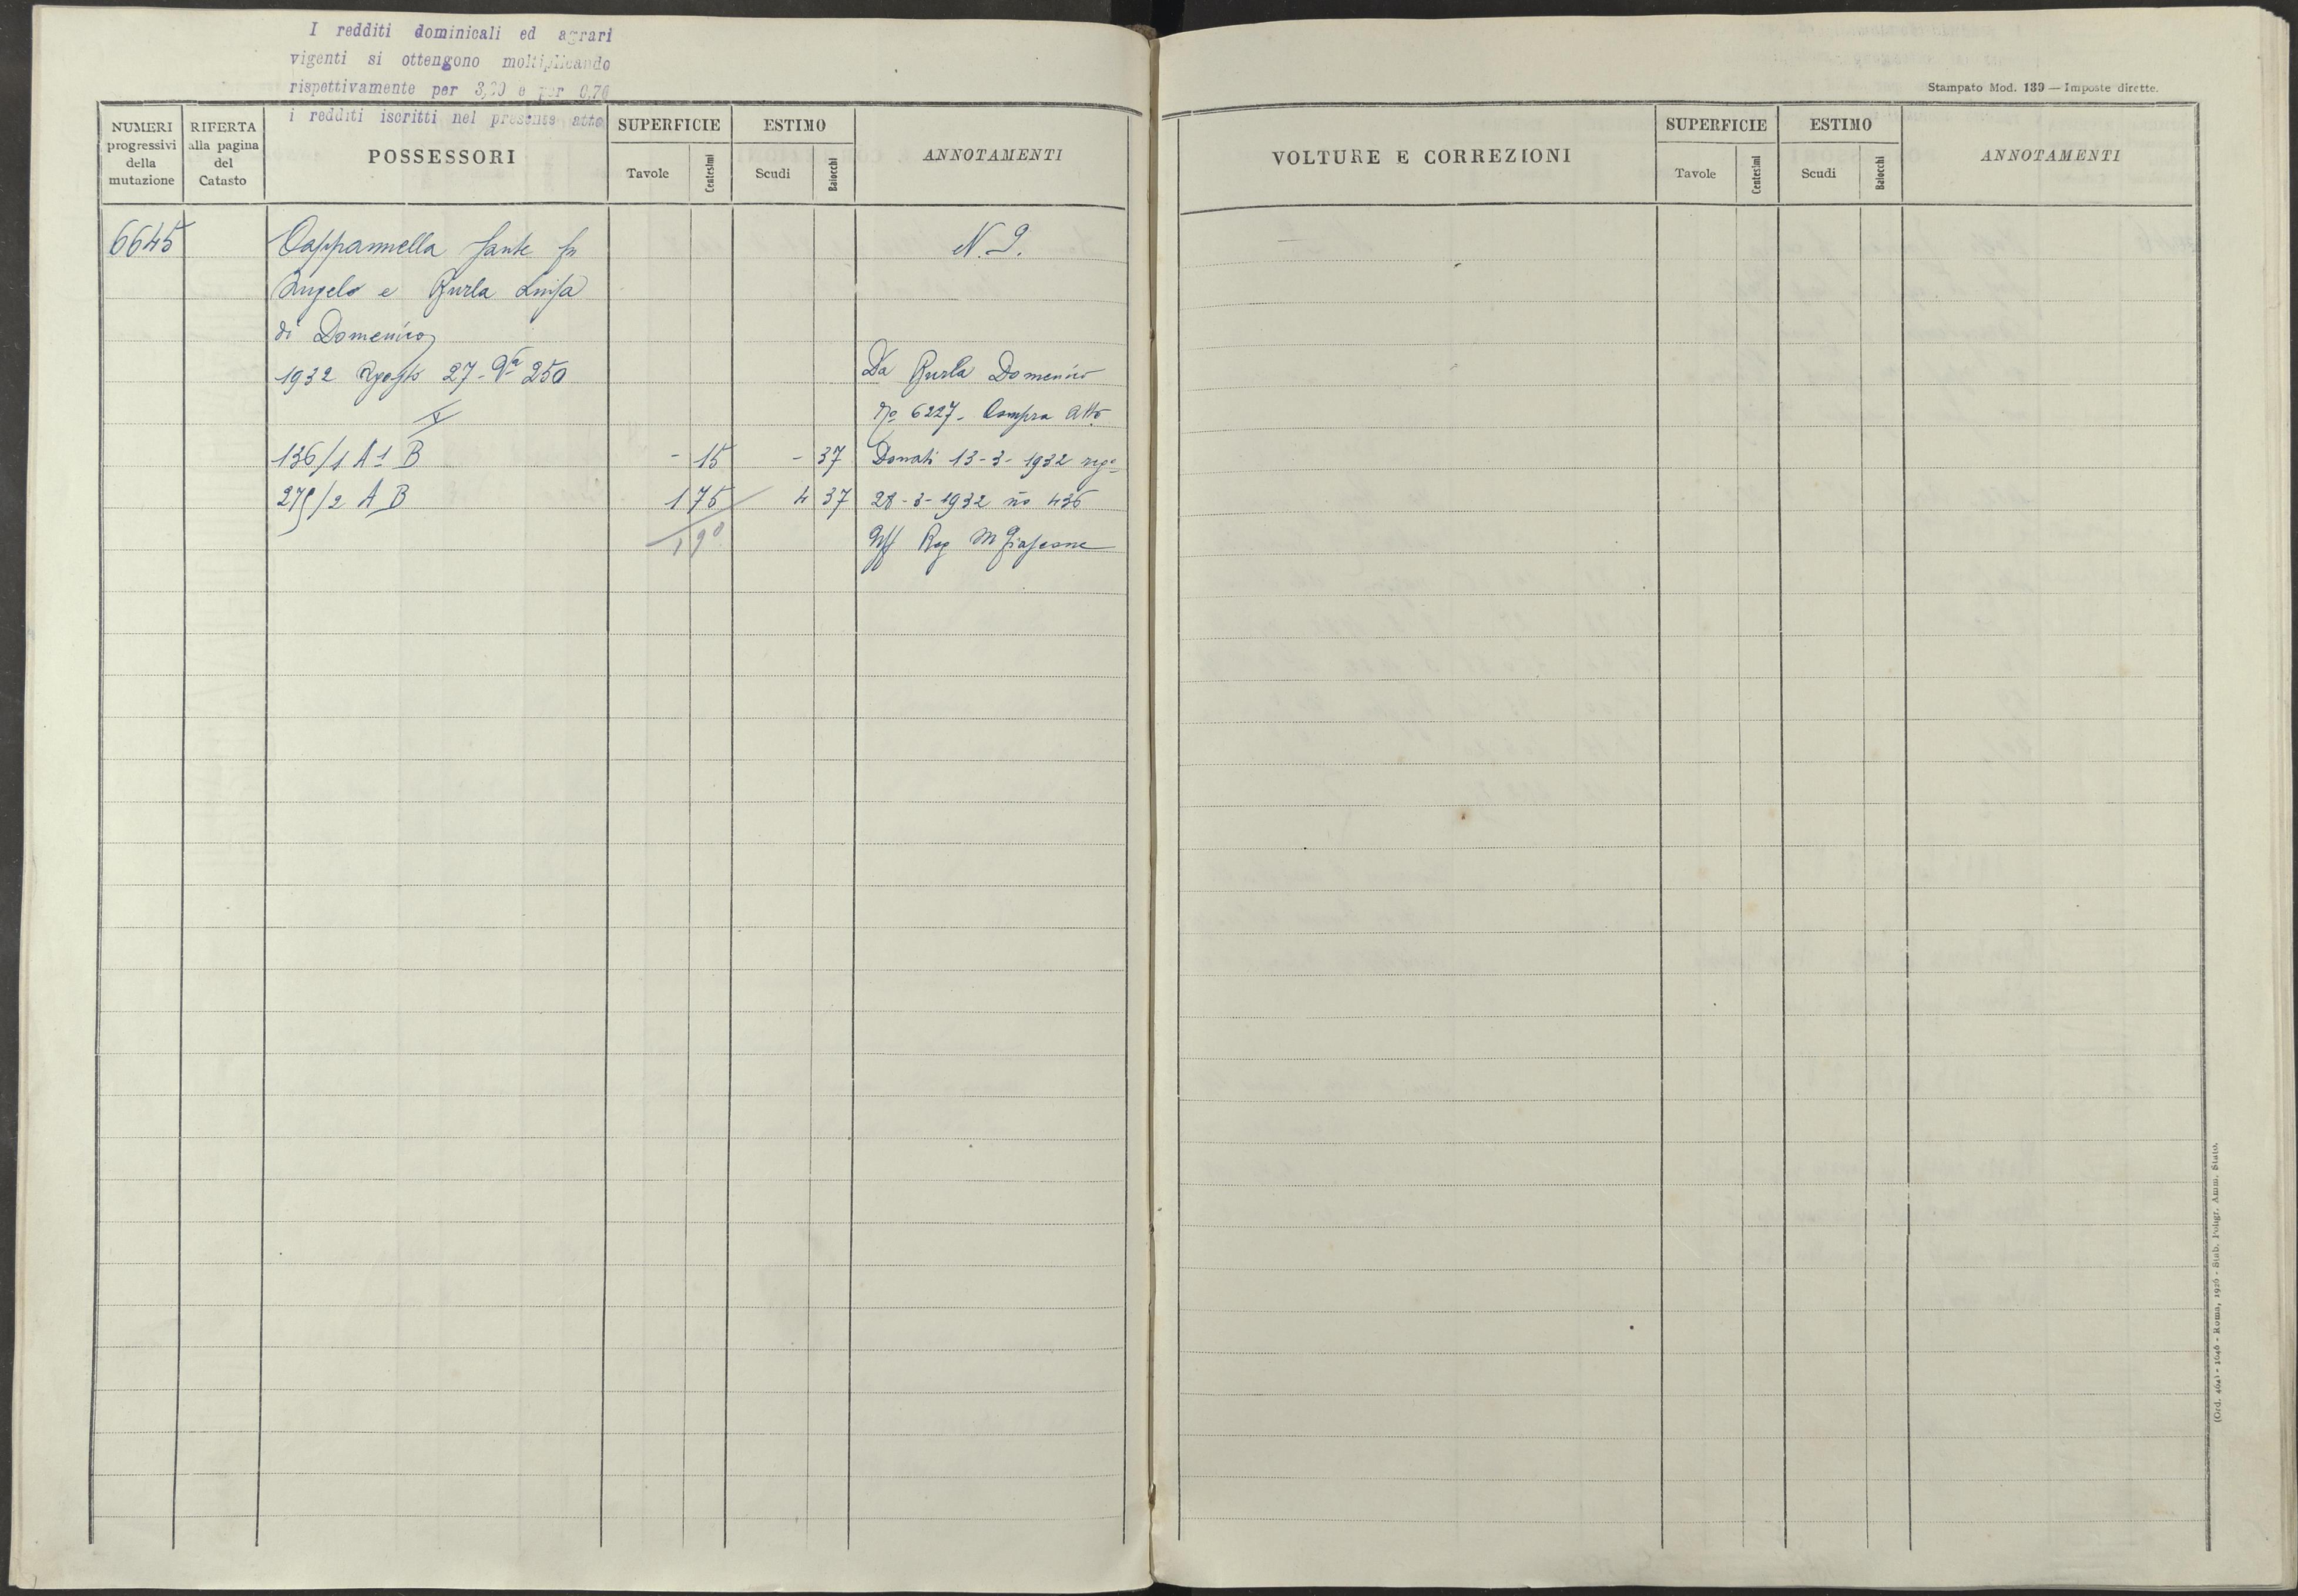 I redditi dominicali ed agrari
vigenti si ottengono moltiplicando
rispettivamente per 3,20 e per 0,70
i redditi iscritti nel presente atto
NUMERI
progressivi
della
mutazione
RIFERTA
alla pagina
del
Catasto
POSSESSORI
SUPERFICIE
Tavole
Centesimi
ESTIMO
Scudi
Baiocchi
ANNOTAMENTI
6645
Cappannella Sante fu
Angelo e Burla Luisa
di Domenico
1932 Agosto 27 - Va 250
136/1 A1 B - 15 - 37
279/2 A B 1 75 4 37
1 90
N. 2.
Da Burla Domenico
No 6227 - Compra Atto
Donati 13-3-1932 rego
28-3-1932 no 436
Uff Reg Mfiascone
Stampato Mod. 139 — Imposte dirette.
VOLTURE E CORREZIONI
SUPERFICIE
Tavole
Centesimi
ESTIMO
Scudi
Baiocchi
ANNOTAMENTI
(Ord. 464) - 1646 - Roma, 1926 - Stab. Poligr. Amm. Stato.